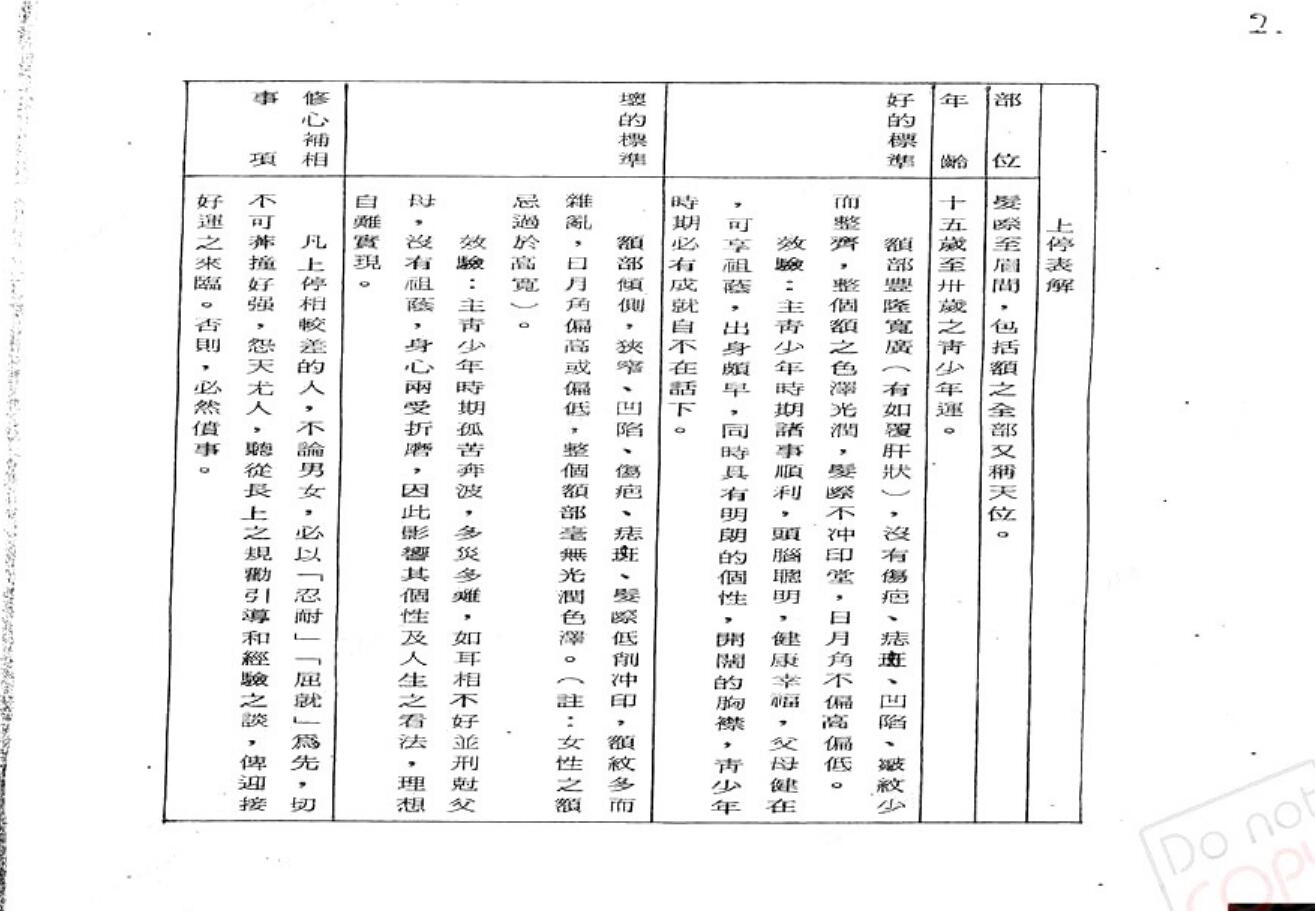 2.
上停表解
部位
髮際至眉間，包括額之全部又稱天位。
年齡
十五歲至卅歲之青少年運。
好的標準
額部豐隆寬廣（有如覆肝狀），沒有傷疤、痣斑、凹陷、皺紋少
而整齊，整個額之色澤光潤，髮際不冲印堂，日月角不偏高偏低。
效驗：主青少年時期諸事順利，頭腦聰明，健康幸福，父母健在
，可享祖蔭，出身頗早，同時具有明朗的個性，開闊的胸襟，青少年
時期必有成就自不在話下。
壞的標準
額部傾側，狹窄、凹陷、傷疤、痣斑、髮際低削冲印，額紋多而
雜亂，日月角偏高或偏低，整個額部毫無光潤色澤。（註：女性之額
忌過於高寬）。
效驗：主青少年時期孤苦奔波，多災多難，如耳相不好並刑尅父
母，沒有祖蔭，身心兩受折磨，因此影響其個性及人生之看法，理想
自難實現。
修心補相
事項
凡上停相較差的人，不論男女，必以「忍耐」「屈就」為先，切
不可莽撞好强，怨天尤人，聽從長上之規勸引導和經驗之談，俾迎接
好運之來臨。否則，必然僨事。
Do not
COPY